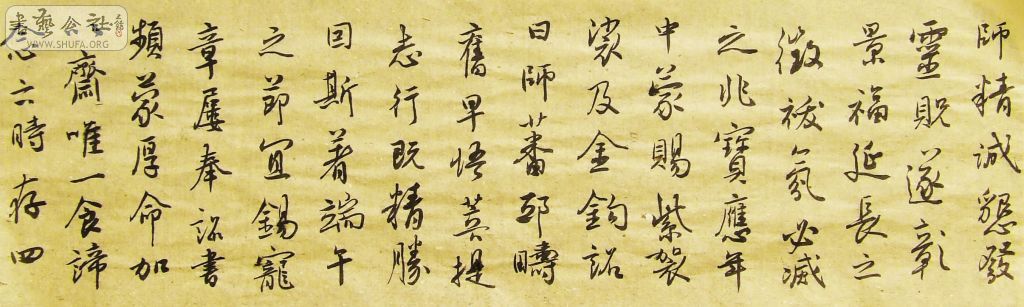 師精誠懇發
靈貺遂彰
景福延長之
徵祓氛必滅
之兆寶應年
中蒙賜紫袈
裟及金鉤詔
曰師蕃邸疇
舊早悟菩提
志行既精勝
因斯著端午
之節宜錫寵
章屢奉詔書
頻蒙厚命加
齋唯一食諦
念六時存四
書藝公社
WWW.SHUFA.ORG